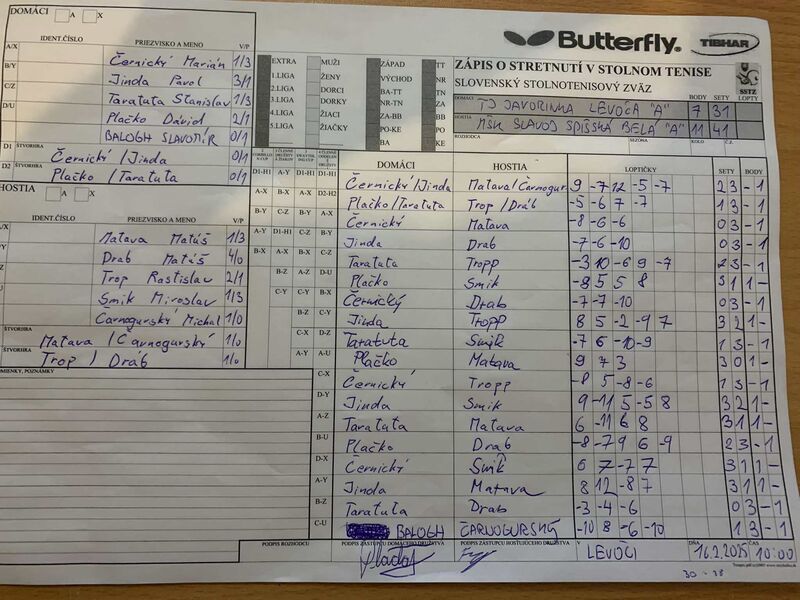 DOMÁCI A X
IDENT.ČÍSLO PRIEZVISKO A MENO V/P
A/X Černický Marián 1/3
B/Y Jinda Pavol 3/1
C/Z Taratuta Stanislav 1/3
D/U Plačko Dávid 2/1
BALOGH SLAVOMÍR 0/1
D1 ŠTVORHRA Černický/Jinda 0/1
D2 ŠTVORHRA Plačko/Taratuta 0/1
HOSTIA A X
IDENT.ČÍSLO PRIEZVISKO A MENO V/P
Matava Matúš 1/3
Drab Matúš 4/0
Trop Rastislav 2/1
Smik Miroslav 1/3
Čarnogurský Michal 1/0
ŠTVORHRA Matava/Čarnogurský 1/0
ŠTVORHRA Trop/Dráb 1/0
POZNÁMKY
EXTRA MUŽI ZÁPAD TT
1.LIGA ŽENY VÝCHOD NR
2.LIGA DORCI BA-TT TN
3.LIGA DORKY NR-TN ZA
4.LIGA ŽIACI ZA-BB BB
5.LIGA ŽIAČKY PO-KE PO
BA KE
Butterfly TIBHAR
ZÁPIS O STRETNUTÍ V STOLNOM TENISE
SLOVENSKÝ STOLNOTENISOVÝ ZVÄZ
SSTZ
BODY SETY LOPTY
DOMÁCI TJ JAVORINKA LEVOČA "A" 7 31
HOSTIA MŠK SLAVOJ SPIŠSKÁ BELÁ "A" 11 41
SEZÓNA KOLO Č.Z.
DOMÁCI HOSTIA LOPTIČKY SETY BODY
Černický/Jinda Matava/Čarnogur. 9 -7 12 -5 -7 2 3 - 1
Plačko/Taratuta Trop/Dráb -5 -6 7 -7 1 3 - 1
Černický Matava -8 -6 -6 0 3 - 1
Jinda Drab -7 -6 -10 0 3 - 1
Taratuta Tropp -3 10 -6 9 -7 2 3 - 1
Plačko Smik -8 5 5 8 3 1 1 -
Černický Drab -7 -7 -10 0 3 - 1
Jinda Tropp 8 5 -2 -9 7 3 2 1 -
Taratuta Smik -7 6 -10 -9 1 3 - 1
Plačko Matava 9 7 3 3 0 1 -
Černický Tropp -8 5 -8 -6 1 3 - 1
Jinda Smik 9 -11 5 -5 8 3 2 1 -
Taratuta Matava 6 -11 6 8 3 1 1 -
Plačko Drab -8 -7 9 6 -9 2 3 - 1
Černický Smik 6 7 -7 7 3 1 1 -
Jinda Matava 8 12 -8 7 3 1 1 -
Taratuta Drab -3 -4 -6 0 3 - 1
BALOGH ČARNOGURSKÝ -10 8 -6 -10 1 3 - 1
PODPIS ROZHODCU PODPIS ZÁSTUPCU DOMÁCEHO DRUŽSTVA PODPIS ZÁSTUPCU HOSŤUJÚCEHO DRUŽSTVA V LEVOČI DŇA 16.2.2025 10:00